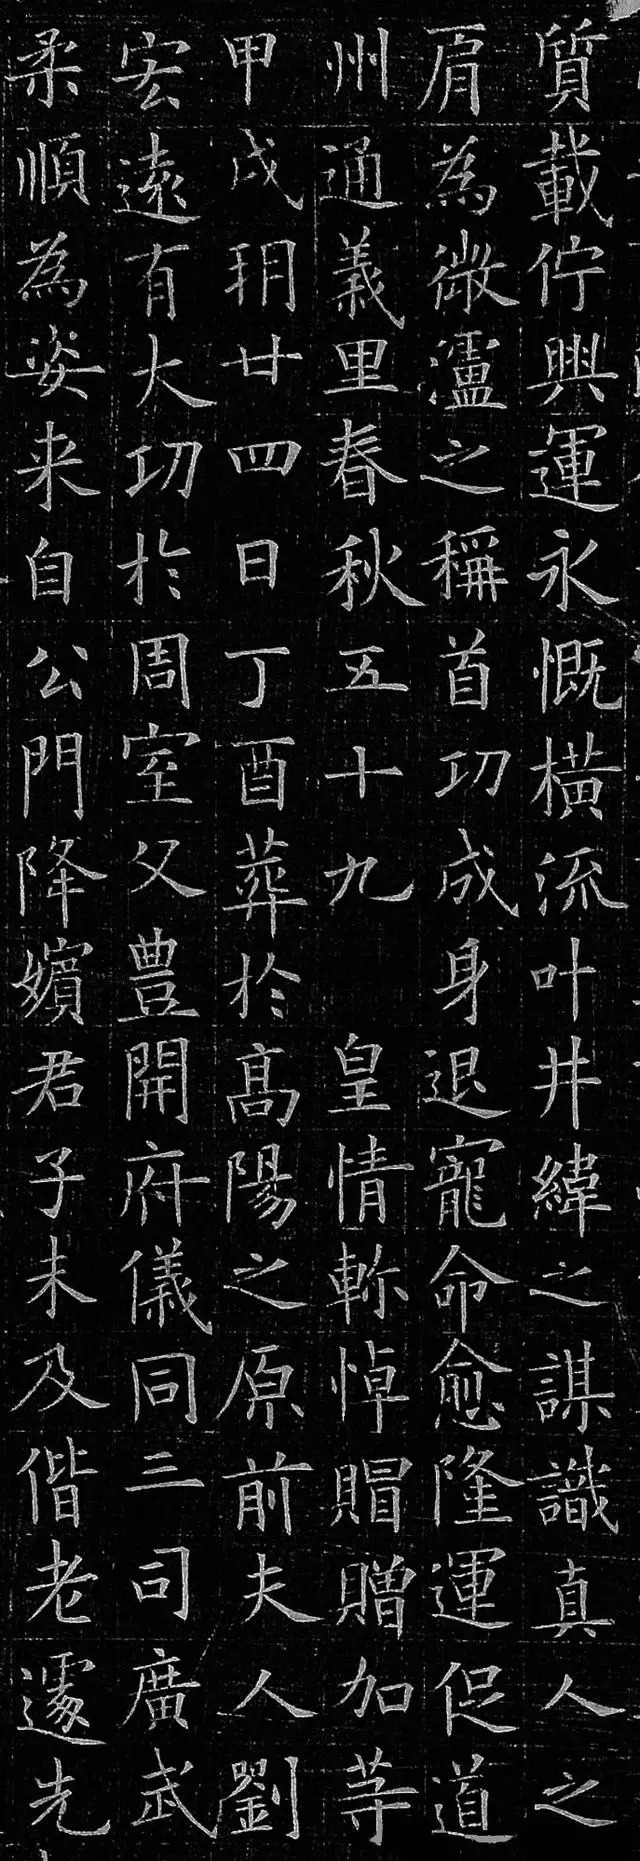 質載佇興運永慨橫流叶井緯之謀識真人之
為微瀘之稱首功成身退寵命愈隆運促道
州通義里春秋五十九 皇情軫悼賵贈加等
甲戌朔廿四日丁酉葬於高陽之原前夫人劉
宏遠有大功於周室父豊開府儀同三司廣武
柔順為姿来自公門降嬪君子未及偕老遽先